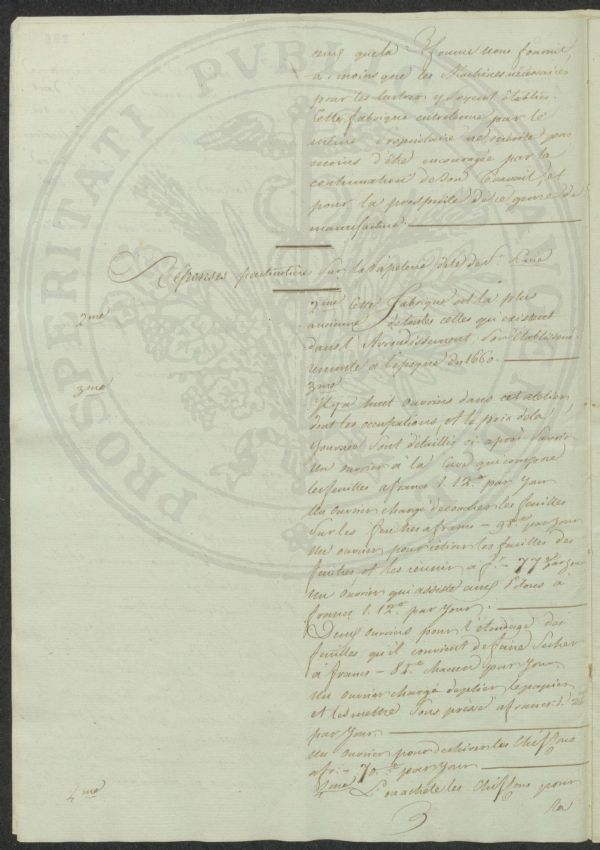 ceux que la france nous fournit,
à moins que les Machines nécessaires
pour les y soyent établies.
Cette fabrique entretenue par le
même propriétaire ne mérite pas
moins d'être encouragée par la
continuation de son travail, et
pour la prospérité de ce genre de
manufacture.
Réponses particulières sur la Papeterie dite de St.
2me
2me Cette Fabrique est la plus
ancienne de toutes celles qui existent
dans l'Arrondissement, Son Etablissemt
remonte à l'epoque du 1660.
3me
3me
Il y a huit ouvriers dans cet atelier
dont les occupations, et le prix de la
journée sont détaillés ci après Savoir
Un ouvrier à la Cuve qui compose
les feuilles a francs 1. 12.c par Jour
Un ouvrier chargé de coucher les feuilles
Sur les feutres a francs - 98.c par Jour
Un ouvrier pour retirer les feuilles des
feutres, et les réunir a f.r - 77 par Jour
Un ouvrier qui assiste aux Pilons à
francs 1. 12.c par Jour.
Deux ouvriers pour l'étendage des
feuilles qu'il convient de faire Secher
à francs - 84.c chacun par Jour
Un ouvrier chargé de plier le papier
et les mettre Sous presse a francs 1.
par Jour
Un ouvrier pour les Chiffons
a fr. - 70.c par Jour
4me
4me L'on achète les Chiffons pour